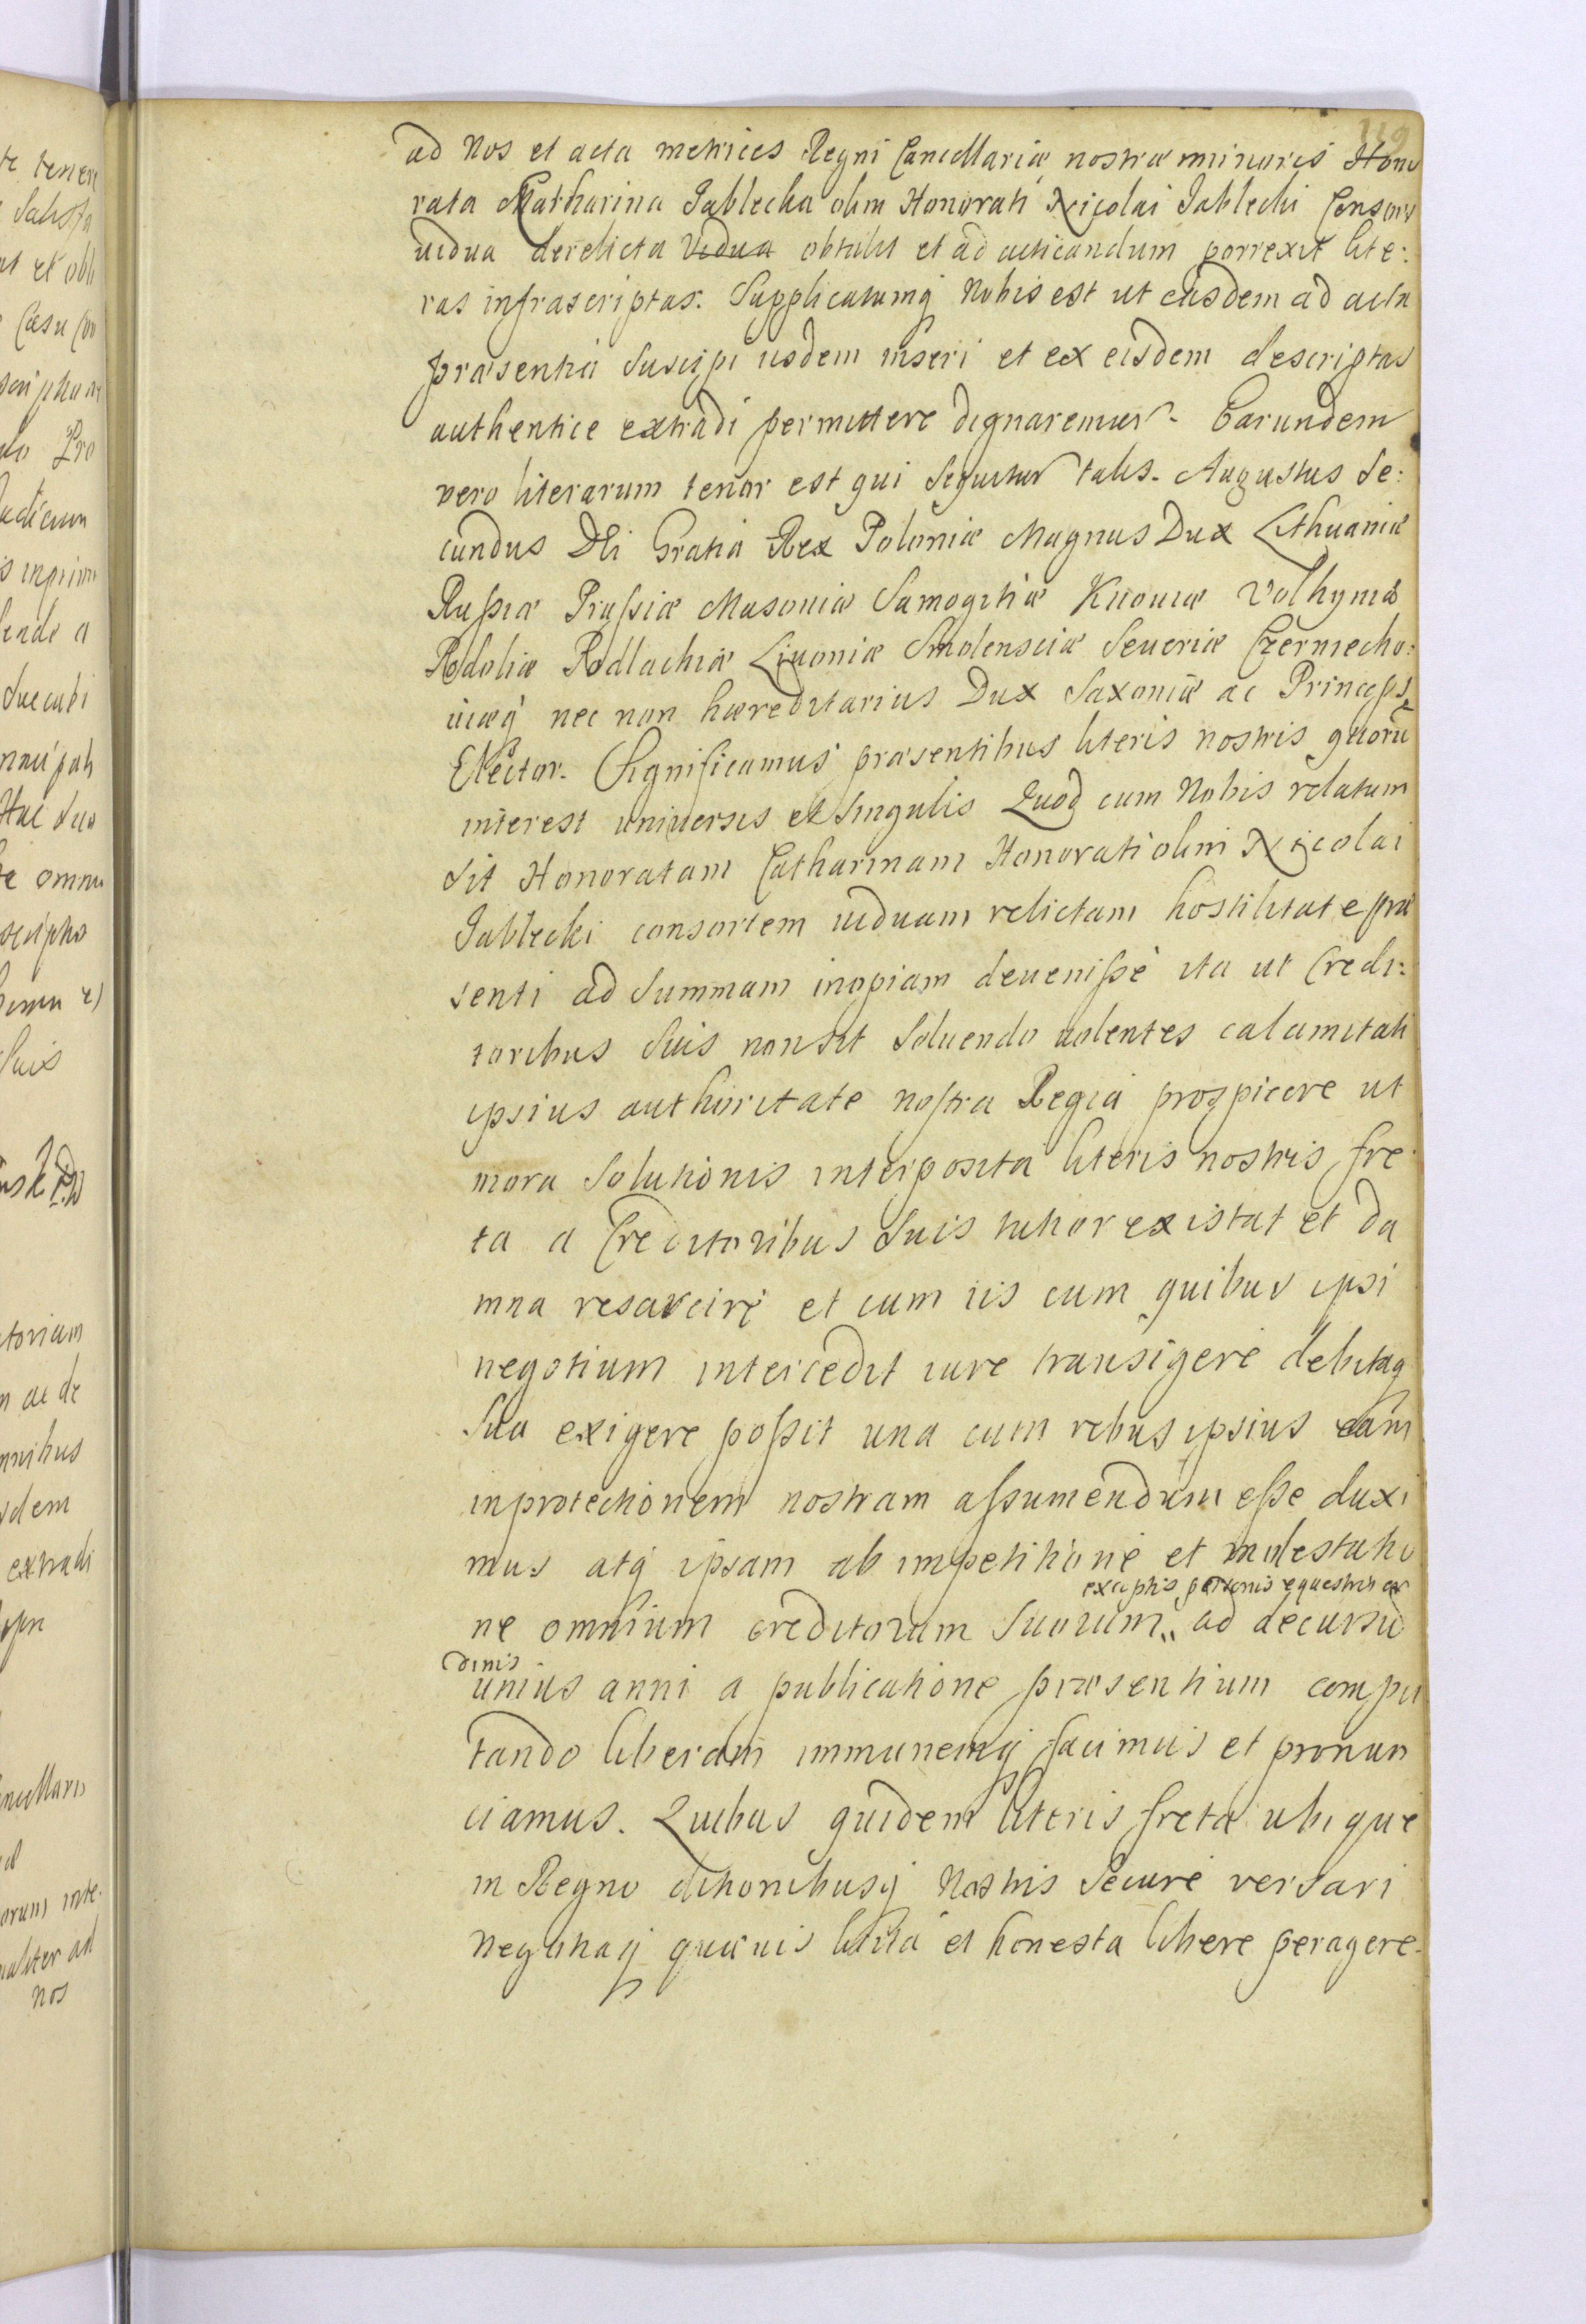 119
ad Nos et acta metrices Regni Cancellariæ nostræ minoris Hono
rata Catharina Jablecka olim Honorati Nicolai Jablecki Consors
uidua derelicta Vidua obtulit et ad acticandum porrexit lite:
ras infrascriptas. Supplicatumq Nobis est ut easdem ad acta
præsentia Suscipi iisdem inseri et ex eisdem descriptas
authentice extradi permittere dignaremur. Earundem
vero literarum tenor est qui Sequitur talis. Augustus Se:
cundus DEi Gratia Rex Poloniæ Magnus Dux Lithuaniæ
Rußiæ Prußiæ Masouiæ Samogitiæ Kiiouiæ Volhyniæ
Podoliæ Podlachiæ Liuoniæ Smolensciæ Seueriæ Czerniecho:
uiæq nec non hæreditarius Dux Saxoniæ ac Princeps
Elector. Significamus præsentibus literis nostris quorũ
interest uniuersis et Singulis Quod cum Nobis relatum
Sit Honoratam Catharinam Honorati olim Nicolai
Jablecki consortem uiduam relictam hostilitate præ
senti ad Summam inopiam deuenißé ita ut Credi:
toribus Suis non sit Soluendo uolentes calamitati
ipsius authoritate nostra Regia prospicere ut
mora Solutionis interposita literis nostris fre
ta a Creditoribus Suis tutior existat et da
mna resarcire et cum iis cum quibus ipsi
negotium intercedit iure transigere debitaq
Sua exigere poßit una cum rebus ipsius eam
in protectionem nostram aßumendam eße duxi
mus atq ipsam ab impetitione et molestatio
exceptis personis equestris or
ne omnium creditorum Suorum ad decursũ
dinis
unius anni a publicatione præsentium compu
tando liberam immunemq facimus et pronun
ciamus. Quibus quidem literis freta ubique
in Regno ditionibusq Nostris Secure versari
negotiaq quæuis licita et honesta libere peragere